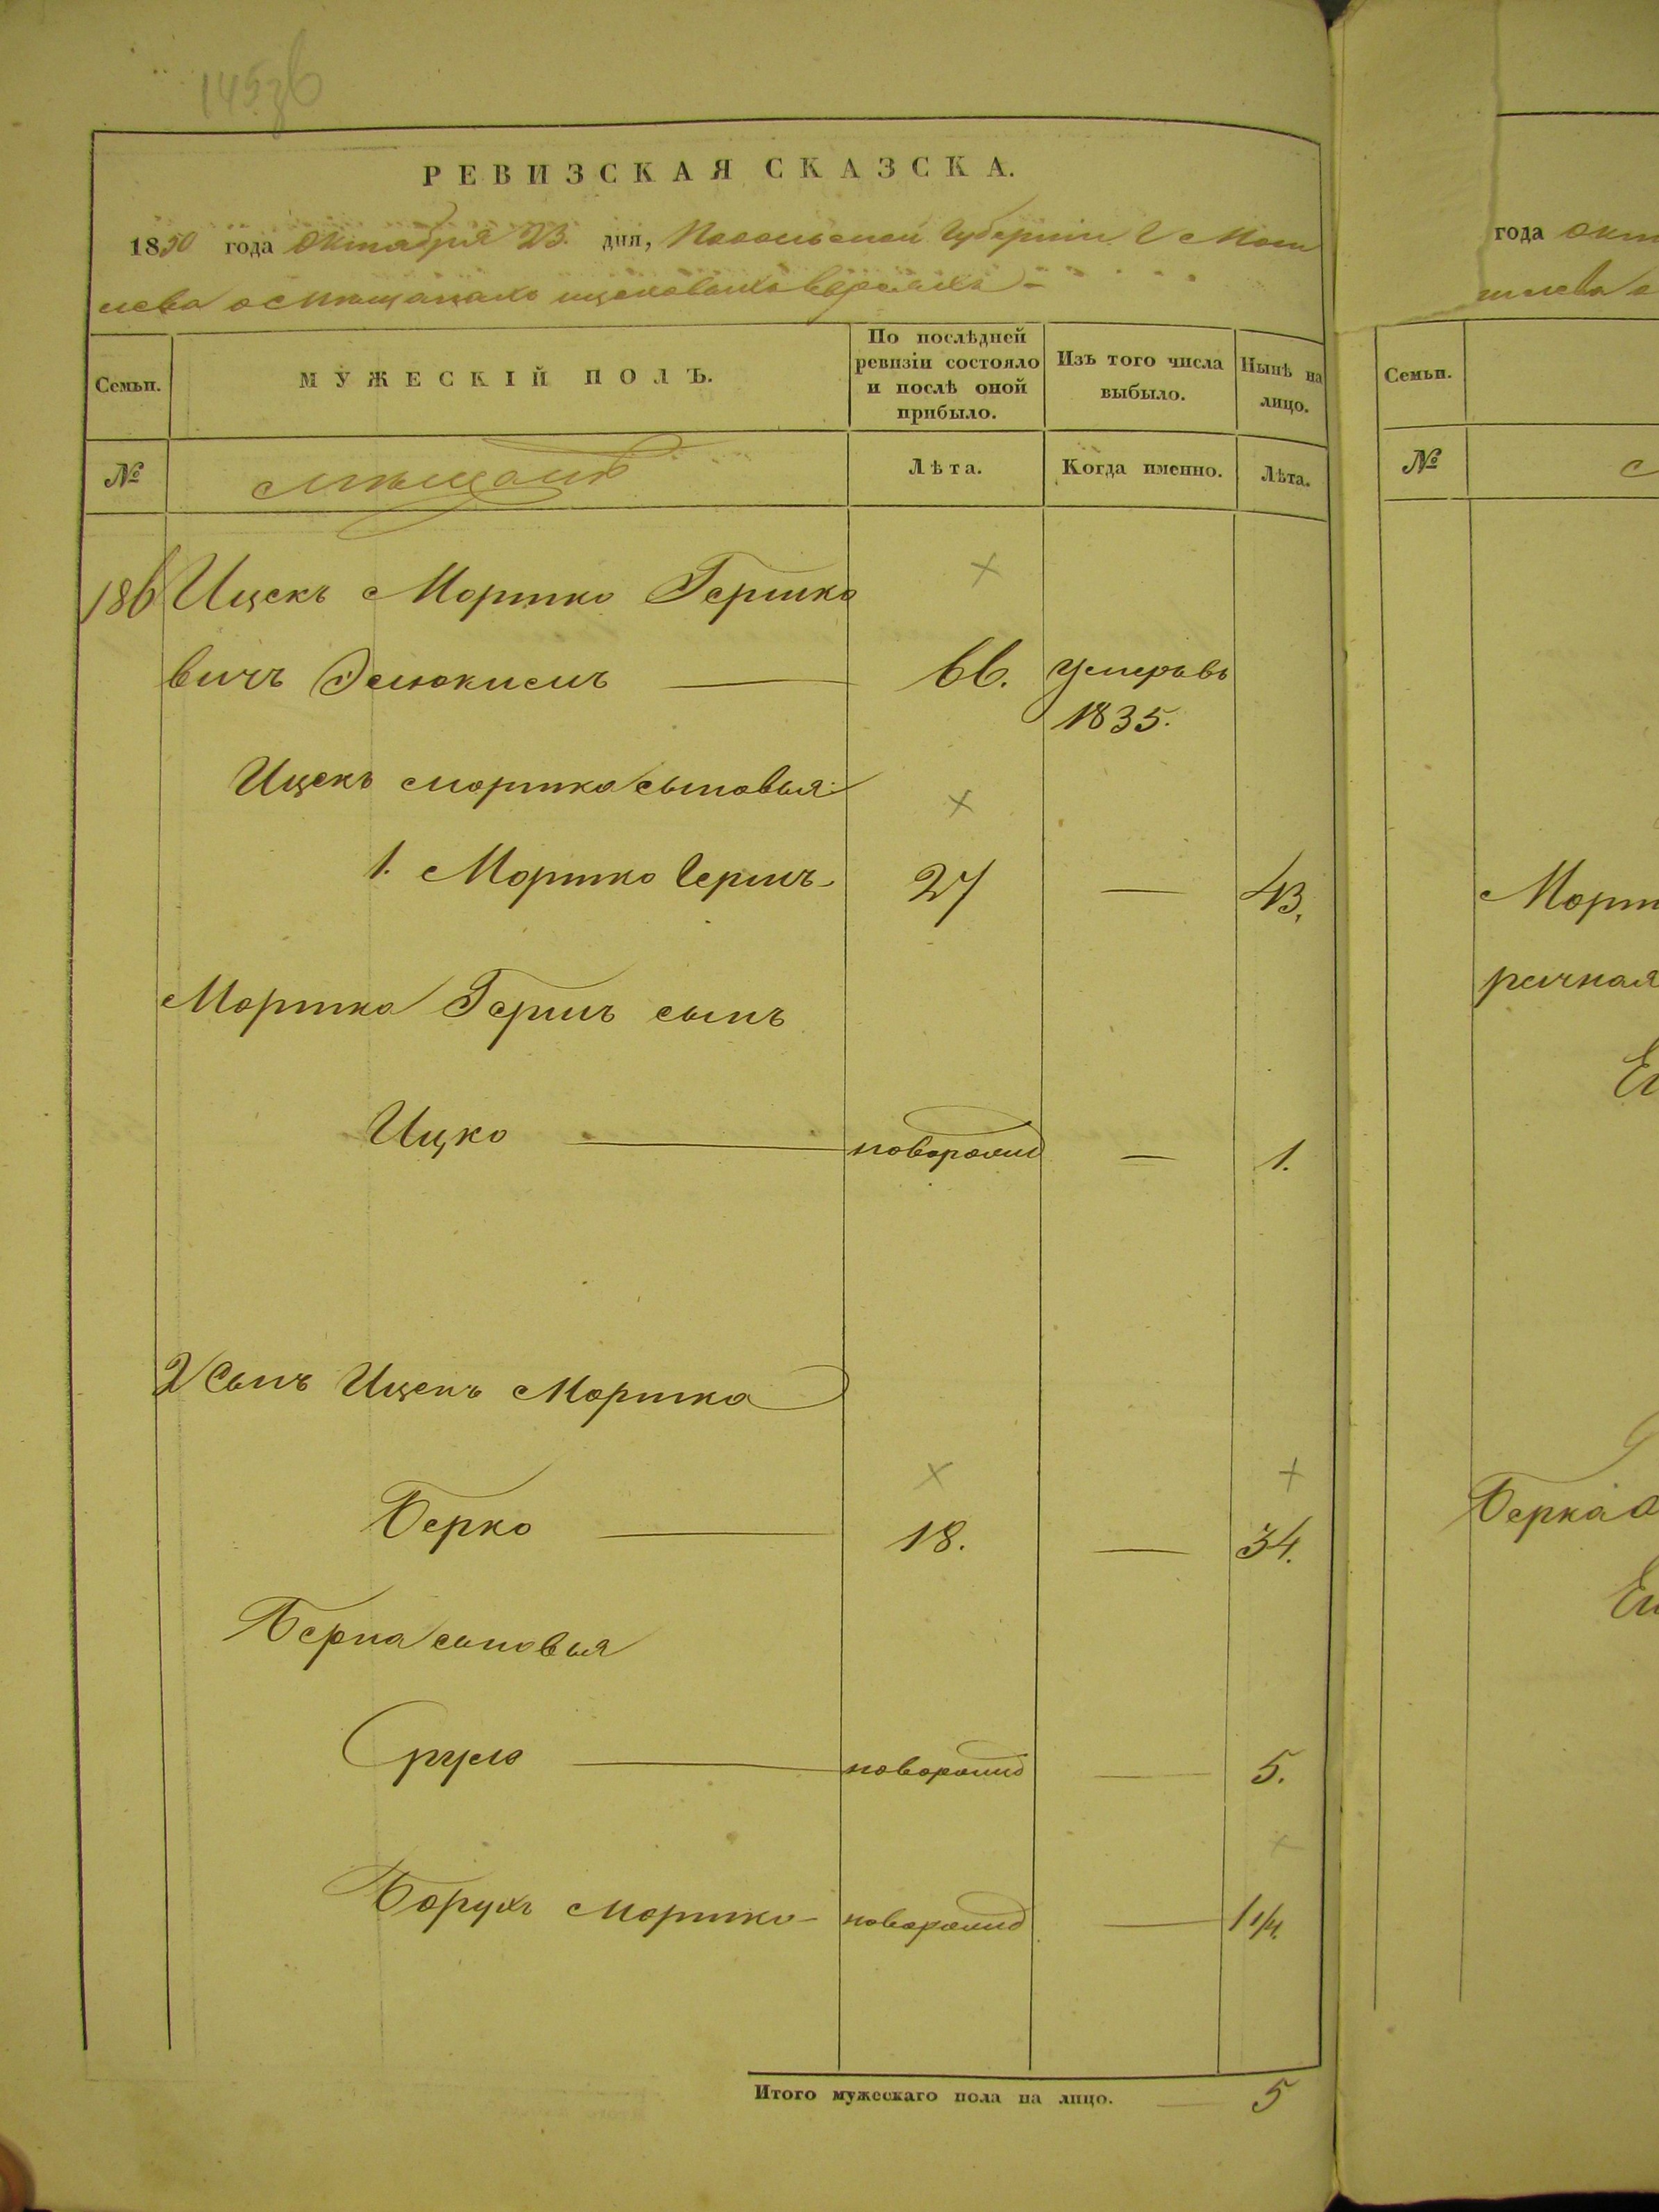 РЕВИЗСКАЯ СКАЗСКА.
1850 года октября 23. дня, Подольской Губернии Г Моги
лева о мѣщанахъ евреяхъ
Семьи.
МУЖЕСКІЙ ПОЛЪ.
По послѣдней ревизіи состояло и послѣ оной прибыло.
Изъ того числа выбыло.
Нынѣ на лицо.
№
мѣщанъ
Лѣта.
Когда именно.
Лѣта.
186 Ицекъ Мортко Гершко
вичъ 66. умеръ въ
1835.
Ицекъ мортка сыновья:
1. Мортко Гершъ 27 — 43.
Мортка Гершъ сынъ
Ицко — новорожд — 1.
2 Сынъ Ицекъ Мортка
Берко — 18. — 34.
Берка сыновья
Сруль — новорожд — 5.
Борухъ Мортко - новорожд — 1 1/4.
Итого мужескаго пола на лицо. — 5
года окт
гилева о
Семьи.
№
Морт
Берка